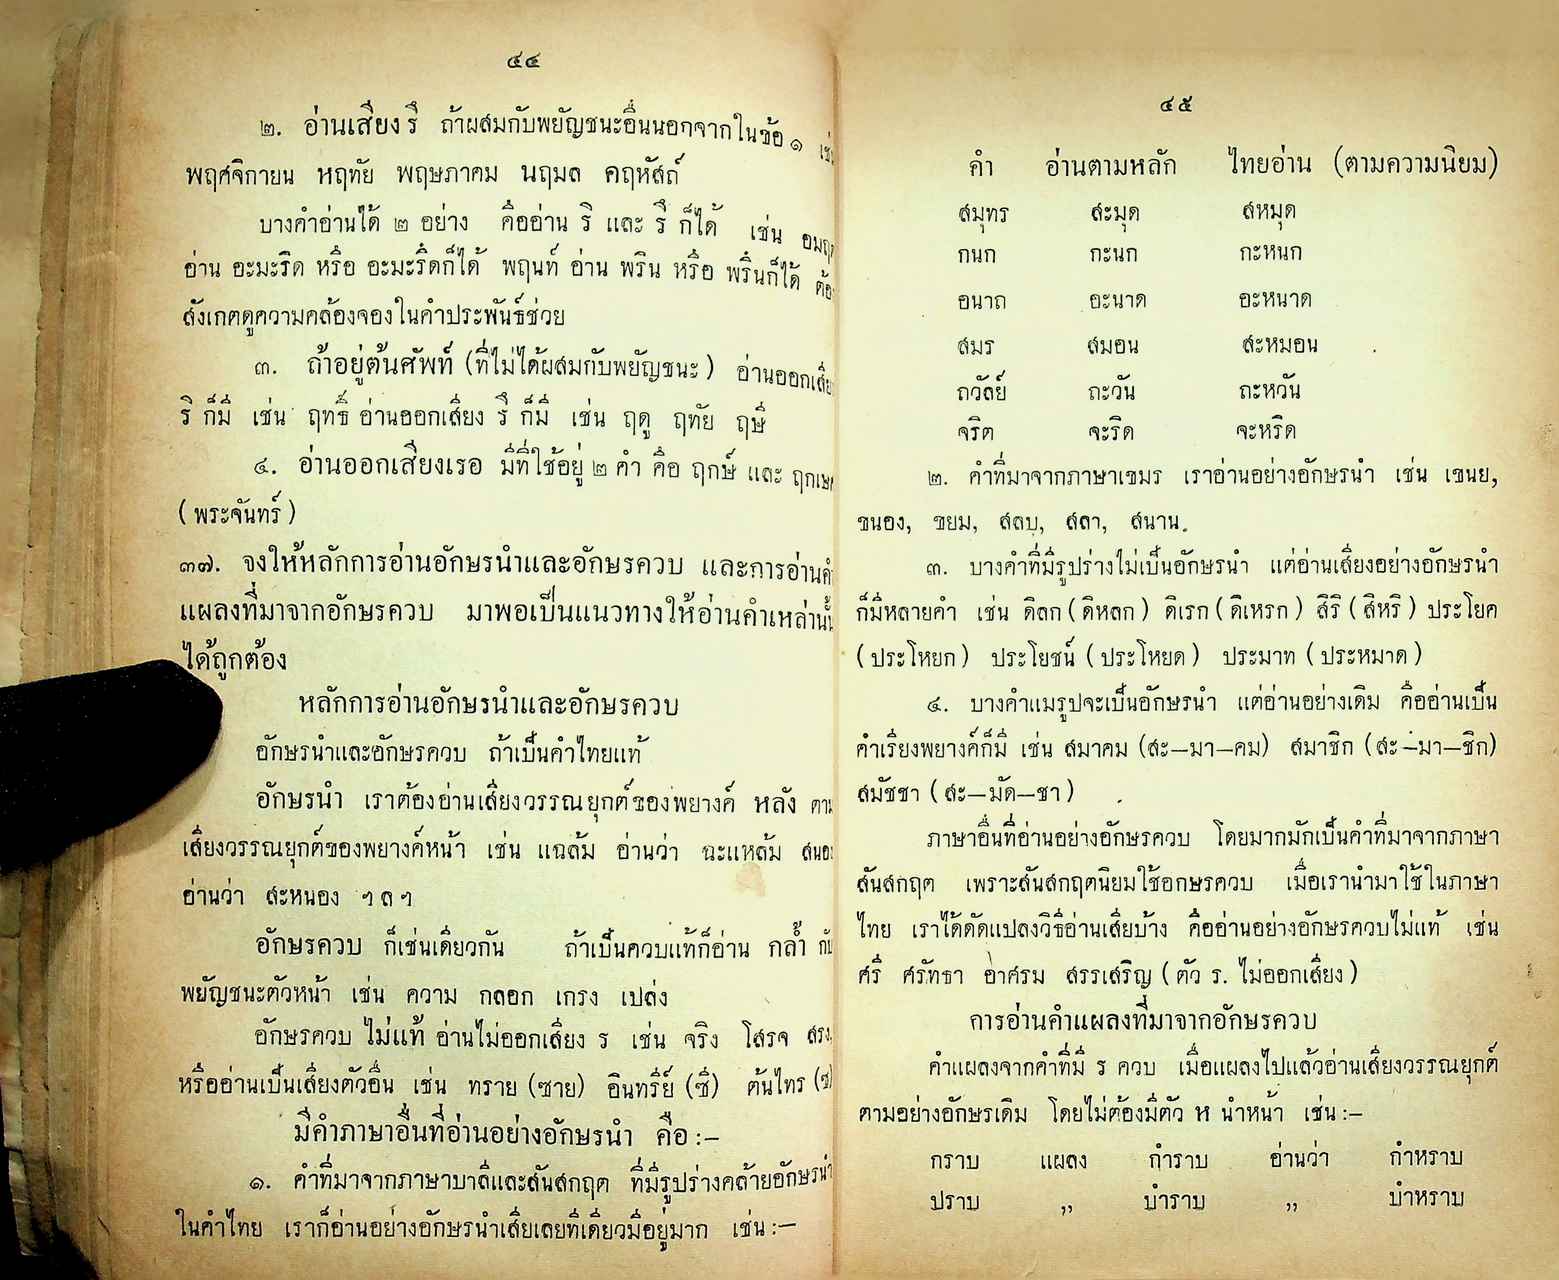 ๔๔
๒. อ่านเสียง รึ ถ้าผสมกับพยัญชนะอื่นนอกจากในข้อ ๑
พฤศจิกายน หฤทัย พฤษภาคม นฤมล คฤหัสถ์
บางคำอ่านได้ ๒ อย่าง คืออ่าน ริ และ รึ ก็ได้ เช่น
อ่าน อะมะริด หรือ อะมะรึดก็ได้ พฤนท์ อ่าน พริน หรือ พรึนก็ได้
สังเกตดูความคล้องจองในคำประพันธ์ช่วย
๓. ถ้าอยู่ต้นศัพท์ (ที่ไม่ได้ผสมกับพยัญชนะ) อ่านออกเสีย
ริ ก็มี เช่น ฤทธิ์ อ่านออกเสียง รึ ก็มี เช่น ฤดู ฤทัย ฤษี
๔. อ่านออกเสียงเรอ มีที่ใช้อยู่ ๒ คำ คือ ฤกษ์ และ
(พระจันทร์)
๓๗. จงให้หลักการอ่านอักษรนำและอักษรควบ และการอ่านคำ
แผลงที่มาจากอักษรควบ มาพอเป็นแนวทางให้อ่านคำเหล่านั้น
ได้ถูกต้อง
หลักการอ่านอักษรนำและอักษรควบ
อักษรนำและอักษรควบ ถ้าเป็นคำไทยแท้
อักษรนำ เราต้องอ่านเสียงวรรณยุกต์ของพยางค์ หลัง ตาม
เสียงวรรณยุกต์ของพยางค์หน้า เช่น แฉล้ม อ่านว่า ฉะแหล้ม
อ่านว่า สะหนอง ฯลฯ
อักษรควบ ก็เช่นเดียวกัน ถ้าเป็นควบแท้ก็อ่าน กล้ำ กับ
พยัญชนะตัวหน้า เช่น ความ กลอก เกรง เปล่ง
อักษรควบ ไม่แท้ อ่านไม่ออกเสียง ร เช่น จริง โสรจ สรง
หรืออ่านเป็นเสียงตัวอื่น เช่น ทราย (ซาย) อินทรีย์ (ซี) ต้นไทร
มีคำภาษาอื่นที่อ่านอย่างอักษรนำ คือ :–
๑. คำที่มาจากภาษาบาลีและสันสกฤต ที่มีรูปร่างคล้ายอักษรนำ
ในคำไทย เราก็อ่านอย่างอักษรนำเสียเลยทีเดียวมีอยู่มาก เช่น :–
๔๕
คำ อ่านตามหลัก ไทยอ่าน (ตามความนิยม)
สมุทร สะมุด สหมุด
กนก กะนก กะหนก
อนาถ อะนาด อะหนาด
สมร สมอน สะหมอน
ถวัลย์ ถะวัน ถะหวัน
จริต จะริด จะหริด
๒. คำที่มาจากภาษาเขมร เราอ่านอย่างอักษรนำ เช่น เขนย,
ขนอง, ขยม, สลบ, สลา, สนาน.
๓. บางคำที่มีรูปร่างไม่เป็นอักษรนำ แต่อ่านเสียงอย่างอักษรนำ
ก็มีหลายคำ เช่น ดิลก (ดิหลก) ดิเรก (ดิเหรก) สิริ (สิหริ) ประโยค
(ประโหยก) ประโยชน์ (ประโหยด) ประมาท (ประหมาด)
๔. บางคำแมรูปจะเป็นอักษรนำ แต่อ่านอย่างเดิม คืออ่านเป็น
คำเรียงพยางค์ก็มี เช่น สมาคม (สะ–มา–คม) สมาชิก (สะ–มา–ชิก)
สมัชชา (สะ–มัด–ชา)
ภาษาอื่นที่อ่านอย่างอักษรควบ โดยมากมักเป็นคำที่มาจากภาษา
สันสกฤต เพราะสันสกฤตนิยมใช้อกษรควบ เมื่อเรานำมาใช้ในภาษา
ไทย เราได้ดัดแปลงวิธีอ่านเสียบ้าง คืออ่านอย่างอักษรควบไม่แท้ เช่น
ศรี ศรัทธา อาศรม สรรเสริญ (ตัว ร. ไม่ออกเสียง)
การอ่านคำแผลงที่มาจากอักษรควบ
คำแผลงจากคำที่มี ร ควบ เมื่อแผลงไปแล้วอ่านเสียงวรรณยุกต์
ตามอย่างอักษรเดิม โดยไม่ต้องมีตัว ห นำหน้า เช่น :–
กราบ แผลง กำราบ อ่านว่า กำหราบ
ปราบ ,, บำราบ ,, บำหราบ